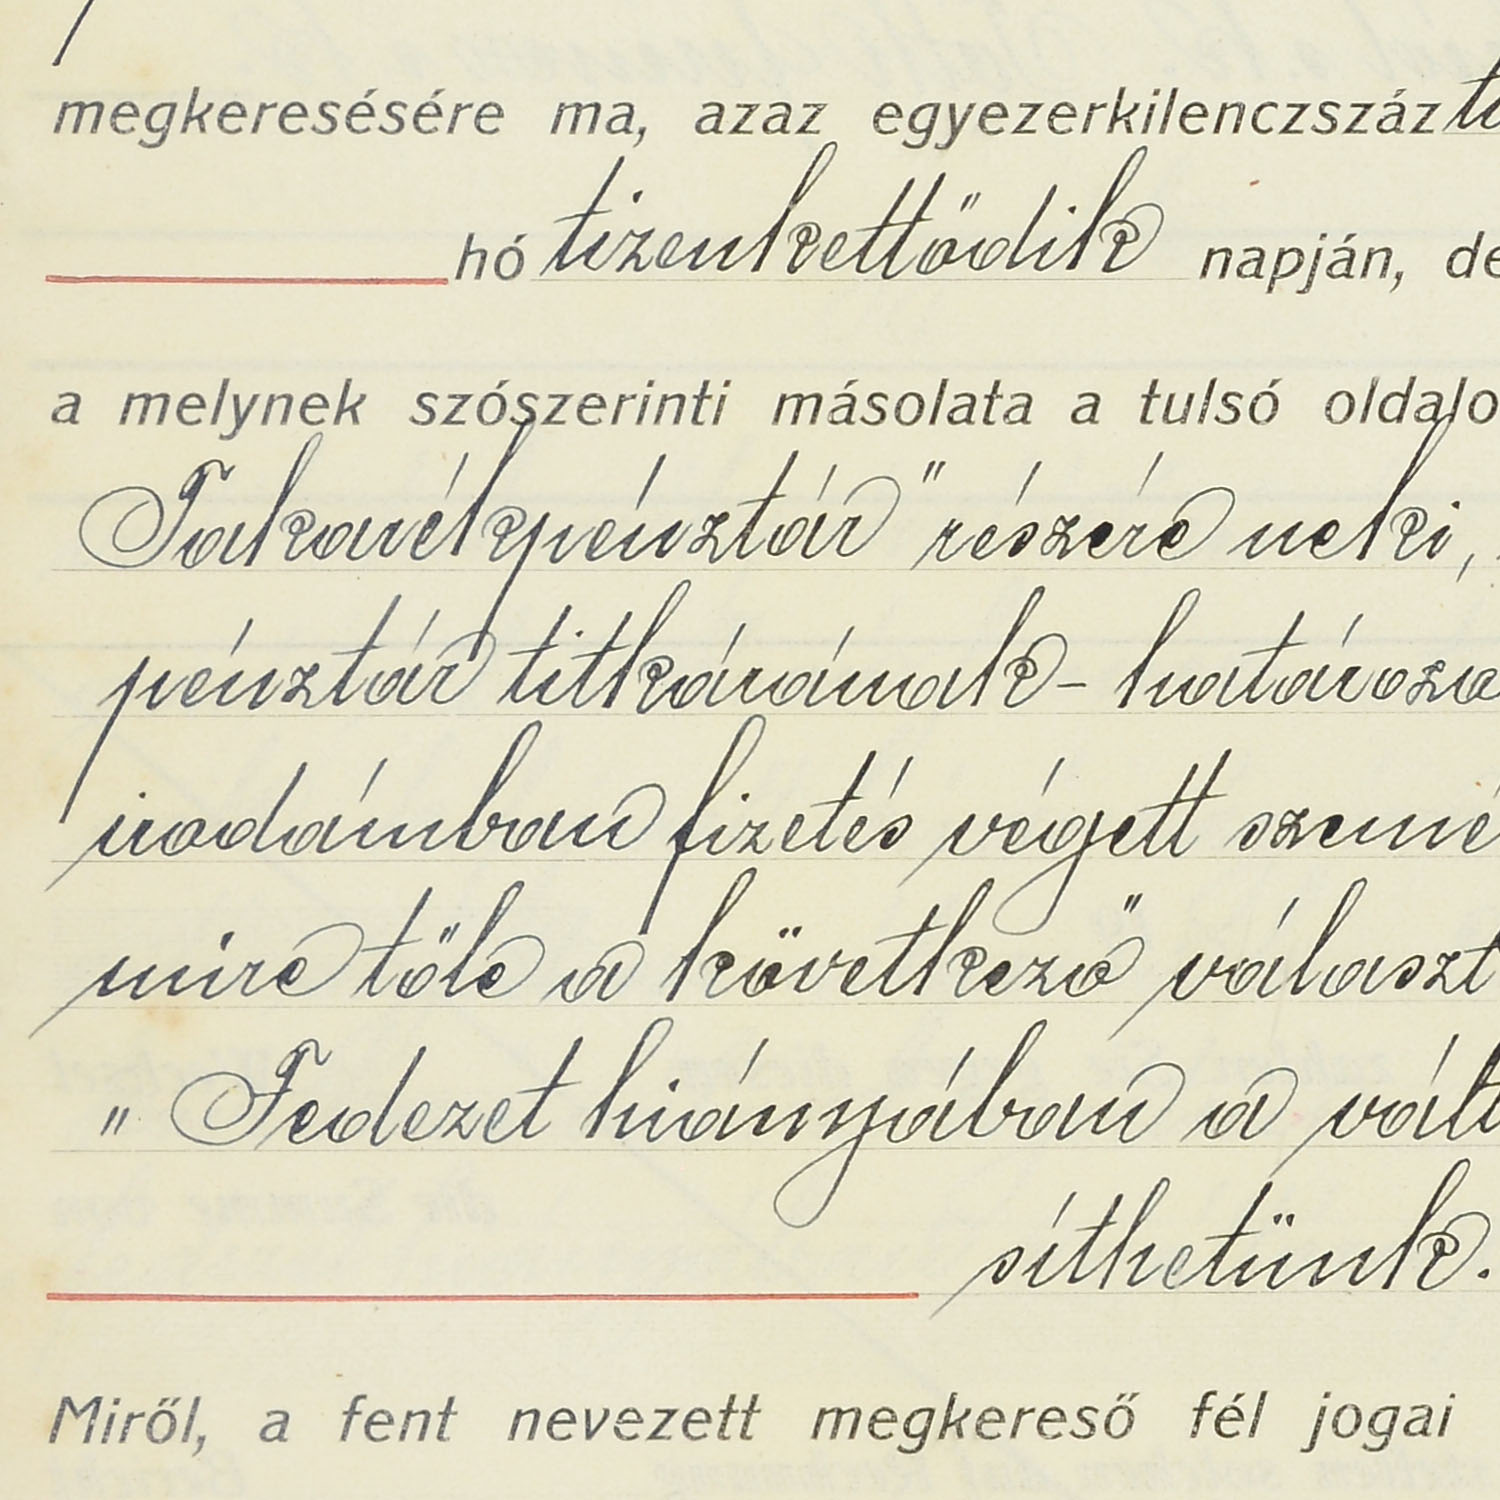 megkeresésére ma, azaz egyezerkilenczszáz
hó tizenkettődik napján, de
a melynek szószerinti másolata a tulsó oldalo
Takarékpénztár" részére neki,
pénztár titkárának - határoza
irodámban fizetés végett szemé
mire tőle a következő választ
" Fedezet hiányában a vált
síthetünk.
Miről, a fent nevezett megkereső fél jogai